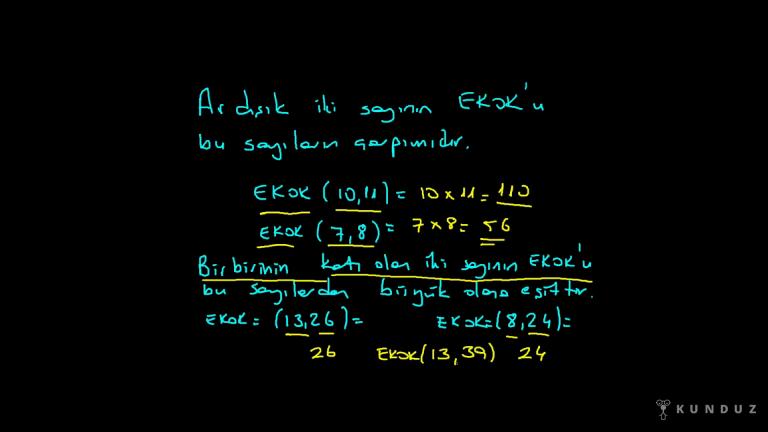 Ardışık iki sayının EKOK'u
bu sayıların çarpımıdır.
EKOK (10,11) = 10 x 11 = 110
EKOK (7,8) = 7 x 8 = 56
Birbirinin katı olan iki sayının EKOK'u
bu sayılardan büyük olana eşittir.
EKOK = (13,26) = EKOK = (8,24) =
26 EKOK(13,39) 24
KUNDUZ